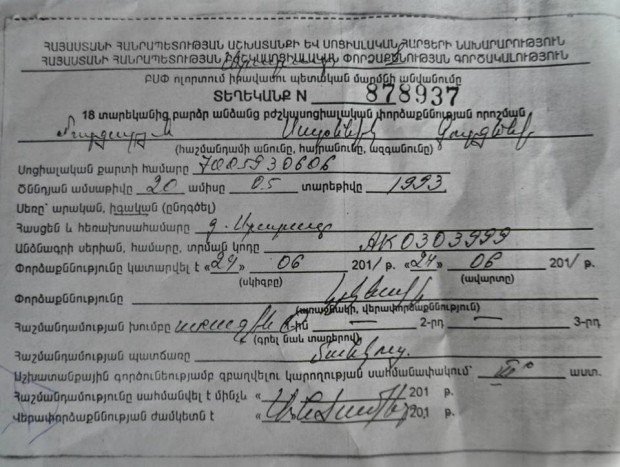 ՀԱՅԱՍՏԱՆԻ ՀԱՆՐԱՊԵՏՈՒԹՅԱՆ ԱՇԽԱՏԱՆՔԻ ԵՎ ՍՈՑԻԱԼԱԿԱՆ ՀԱՐՑԵՐԻ ՆԱԽԱՐԱՐՈՒԹՅՈՒՆ
ՀԱՅԱՍՏԱՆԻ ՀԱՆՐԱՊԵՏՈՒԹՅԱՆ ԲԺՇԿԱՍՈՑԻԱԼԱԿԱՆ ՓՈՐՁԱՔՆՆՈՒԹՅԱՆ ԳՈՐԾԱԿԱԼՈՒԹՅՈՒՆ
ԲՍՓ ոլորտում իրավասու պետական մարմնի անվանումը
ՏԵՂԵԿԱՆՔ N 878937
18 տարեկանից բարձր անձանց բժշկասոցիալական փորձաքննության որոշման
(հաշմանդամի անունը, հայրանունը, ազգանունը)
Սոցիալական քարտի համարը 7005930606
Ծննդյան ամսաթիվը 20 ամիսը 05 տարեթիվը 1993
Սեռը՝ արական, իգական (ընդգծել)
Հասցեն և հեռախոսահամարը
Անձնագրի սերիան, համարը, տրման կոդը AK0303999
Փորձաքննությունը կատարվել է «24» 06 201/ թ. «24» 06 201/ թ.
(սկիզբը) (ավարտը)
Փորձաքննությունը
(առաջնակի, վերափորձաքննություն)
Հաշմանդամության խումբը առաջին 1-ին — 2-րդ — 3-րդ
(գրել նաև տառերով)
Հաշմանդամության պատճառը մանկուց.
Աշխատանքային գործունեությամբ զբաղվելու կարողության սահմանափակում՝ աստ.
Հաշմանդամությունը սահմանվել է մինչև « 201 թ.
Վերափորձաքննության ժամկետն է « 201 թ.